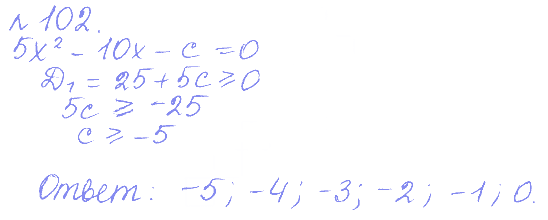 № 102.
5x² - 10x - c = 0
D₁ = 25 + 5c ⩾ 0
5c ⩾ -25
c ⩾ -5
Ответ: -5; -4; -3; -2; -1; 0.